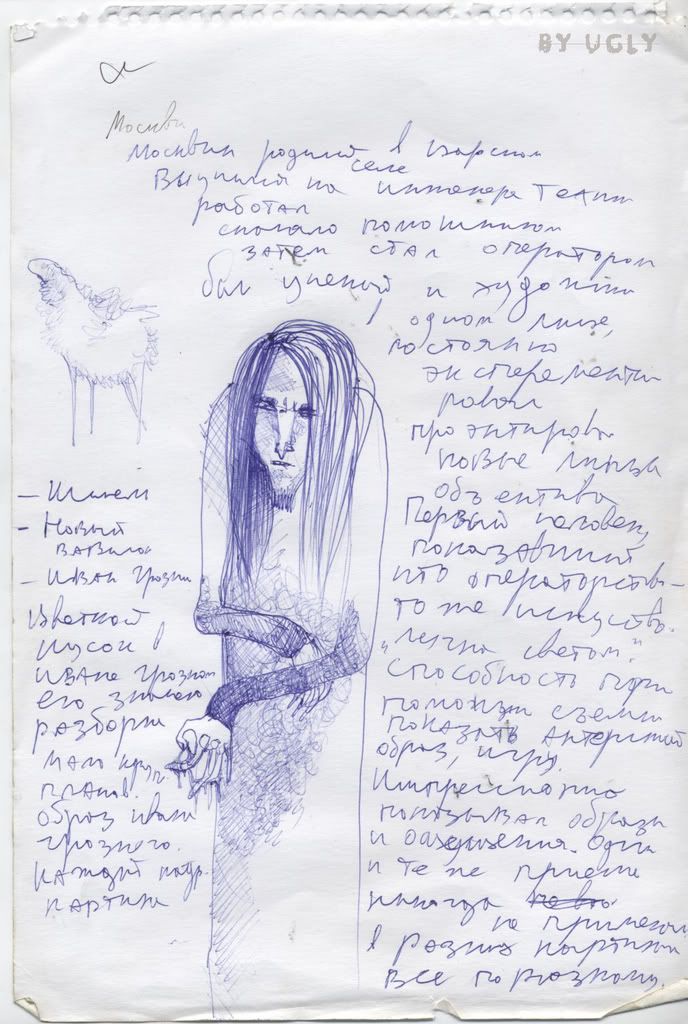 BY UGLY
Москви
Москвин родился в царском
селе
Выучился на инженера техни
работал
сначало помошником
затем стал оператором
был ученый и художник
в одном лице,
постоянно
эксперементи
ровал
проэктирова
новые линзы
объективы
Первый человек,
показавший
что операторство-
тоже искуство.
"лепка светом."
способность при
помощи съемки
показать актерский
образ, игру.
Импрессионно
показывал образы
и ощущения. Одни
и те же приемы
никогда
не применял
в разных картинах
все поразному.
- Шинель
- Новый
вавилон
- Иван Грозны
Цветной
кусок в
Иване грозном
его знамо
разборн
мало круп.
планов.
образ ивана
грозного.
каждый кадр.
картина